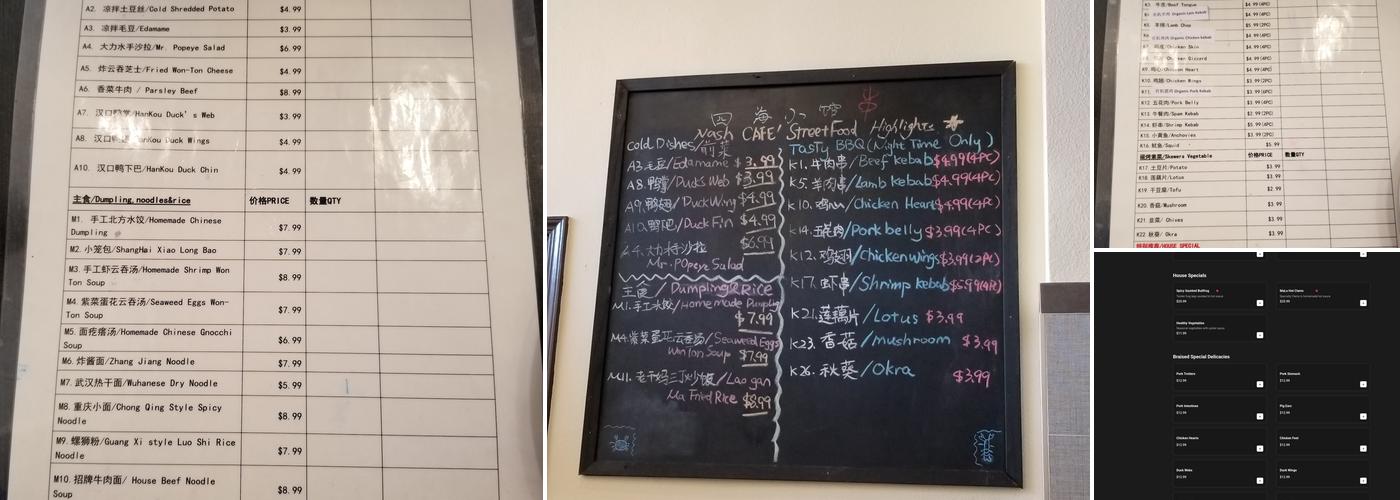 A2. 凉拌土豆丝/Cold Shredded Potato $4.99
A3. 凉拌毛豆/Edamame $3.99
A4. 大力水手沙拉/Mr. Popeye Salad $6.99
A5. 炸云吞芝士/Fried Won-Ton Cheese $4.99
A6. 香菜牛肉 / Parsley Beef $8.99
A7. 汉口鸭掌/HanKou Duck's Web $3.99
A8. 汉口鸭翅/HanKou Duck Wings $4.99
A10. 汉口鸭下巴/HanKou Duck Chin $4.99
主食/Dumpling,noodles&rice 价格PRICE 数量QTY
M1. 手工北方水饺/Homemade Chinese Dumpling $7.99
M2. 小笼包/ShangHai Xiao Long Bao $7.99
M3. 手工虾云吞汤/Homemade Shrimp Won Ton Soup $8.99
M4. 紫菜蛋花云吞汤/Seaweed Eggs Won-Ton Soup $7.99
M5. 面疙瘩汤/Homemade Chinese Gnocchi Soup $6.99
M6. 炸酱面/Zhang Jiang Noodle $7.99
M7. 武汉热干面/Wuhanese Dry Noodle $5.99
M8. 重庆小面/Chong Qing Style Spicy Noodle $8.99
M9. 螺狮粉/Guang Xi style Luo Shi Rice Noodle $7.99
M10. 招牌牛肉面/ House Beef Noodle Soup $8.99
四 海 小 馆
Nash CAFE' Street Food Highlights
Cold Dishes/前菜
A3.毛豆/Edamame $3.99
A8.鸭掌/Duck's Web $3.99
A9.鸭翅/Duck Wing $4.99
A10.鸭肥/Duck Fin $4.99
A4.大力水手沙拉 $6.99
Mr. Popeye Salad
主食/Dumpling&Rice
M1.手工水饺/Home made Dumpling
$7.99
M4.紫菜蛋花云吞汤/Seaweed Eggs
Wonton Soup $7.99
M11.老干妈三丁炒饭/Lao gan
Ma Fried Rice $8.99
Tasty BBQ(Night Time Only)
K1.牛肉串/Beef kebab $4.99(4PC)
K5.羊肉串/Lamb kebab $4.99(4PC)
K10.鸡心/Chicken Heart $4.99(4PC)
K14.五花肉/Pork belly $3.99(4PC)
K12.鸡翅/Chicken wings $3.99(2PC)
K17.虾串/Shrimp kebab $5.99(4PC)
K21.莲藕片/Lotus $3.99
K23.香菇/mushroom $3.99
K26.秋葵/Okra $3.99
K3. 牛舌/Beef Tongue $4.99(4PC)
Organic Lamb Kebab $4.99(4PC)
K5. 羊排/Lamb Chop $5.99(2PC)
Organic Chicken kebab $4.99(4PC)
Chicken Skin $4.99(4PC)
Chicken Gizzard $4.99(4PC)
K9. 鸡心/Chicken Heart $4.99(4PC)
K10. 鸡翅/Chicken Wings $3.99(2PC)
K11. Organic Pork Kebab $3.99(4PC)
K12. 五花肉/Pork Belly $3.99(4PC)
K13. 午餐肉/Spam Kebab $2.99(4PC)
K14. 虾串/Shrimp Kebab $5.99(4PC)
K15. 小黄鱼/Anchovies $3.99(2PC)
K16. 鱿鱼/Squid $5.99
碳烤素菜/Skewers Vegetable 价格PRICE 数量QTY
K17. 土豆片/Potato $3.99
K18. 莲藕片/Lotus $3.99
K19. 干豆腐/Tofu $2.99
K20. 香菇/Mushroom $3.99
K21. 韭菜/ Chives $3.99
K22 秋葵/ Okra $3.99
特别推荐/HOUSE SPECIAL
House Specials
Spicy Sautéed Bullfrog
MaLa Hot Clams
Healthy Vegetable
$11.99
Braised Special Delicacies
Pork Trotters
$12.99
Pork Stomach
$12.99
Pork Intestines
$12.99
Pig Ears
$12.99
Chicken Hearts
$12.99
Chicken Feet
$12.99
Duck Webs
$12.99
Duck Wings
$12.99